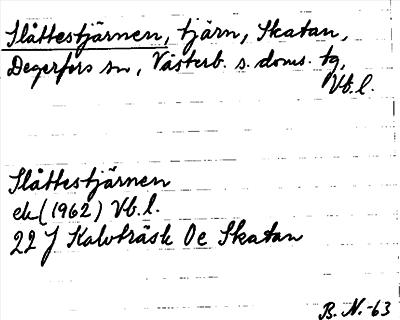 Slåttestjärnen, tjärn, Skatan,
Degerfors sn, Västerb. s. doms. tg,
Vb.l.
Slåttestjärnen
ek (1962) Vb.l.
22 J Kalvträsk 0e Skatan
B. N. -63